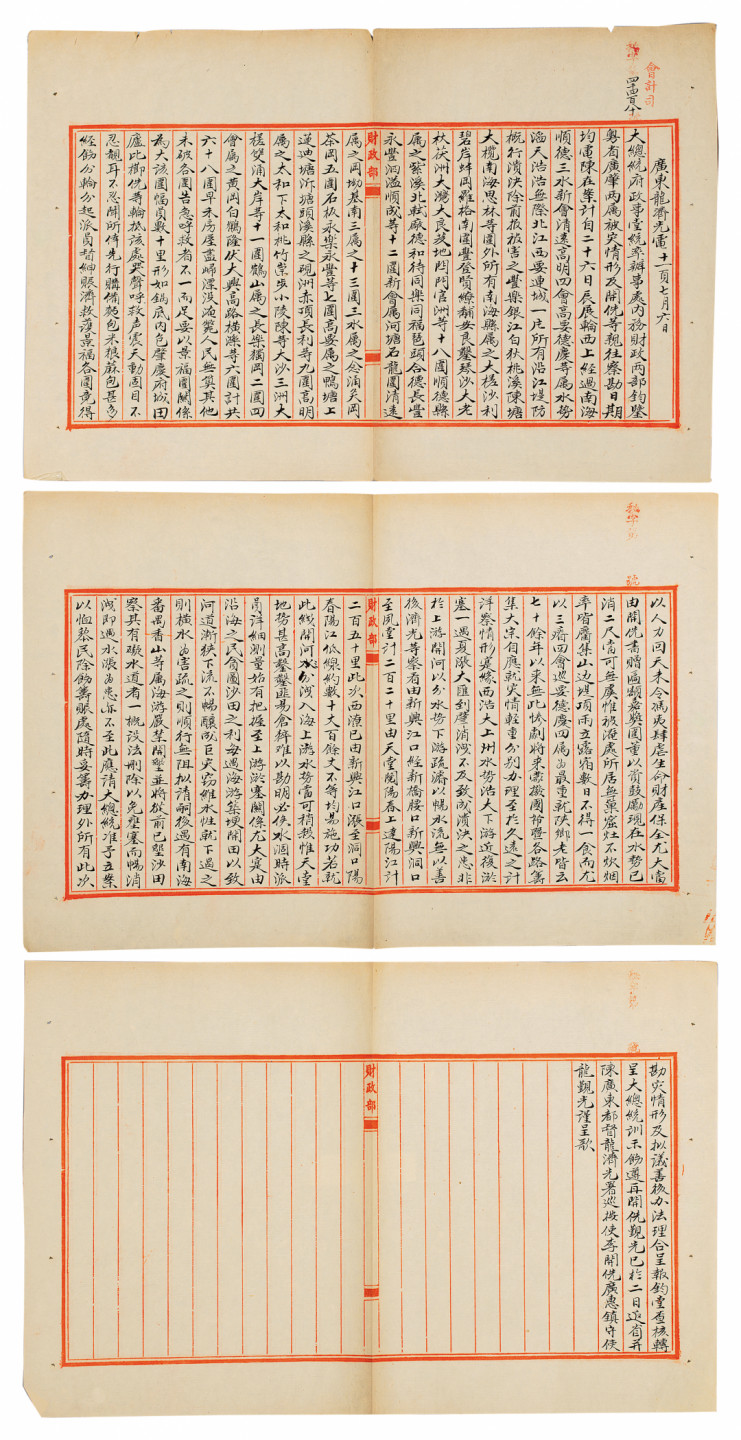 會計司
廣東龍濟光電 十一頁七月六日
大總統府政事堂統率辦事處內務財政兩部鈞鑒
粵省廣肇兩屬被災情形及開侁等親往察勘日期
均電陳在案計自二十六日辰展輪西上經過南海
順德三水新會清遠高明四會高要德慶等屬水勢
滔天浩浩無際北江西要連城一片所有沿江堤防
概行潰決除前報被害之豐樂銀江白秋桃溪陳塘
大欖南海思林等圍外所有南海縣屬之大槎沙利
碧岸蚌岡羅格南圍豐登賢繚輔安良鑿臻沙大老
秋茯洲大灣大良芰地閂閂官洲等十八圍順德縣
屬之紫溪北軾廠德和待同樂同福琶頭合德長豐
永豐泗滘順成等十二圍新會屬河塘石龍圍清遠
屬之岡坳基南三屬之十三圍三水屬之念涌灸岡
茶岡五圍石板永樂永豐等七圍高要屬之鴨塘上
蓮迪塘沂塘頭溪縣之硯洲赤項長利等九圍高明
屬之太和下太和桃竹崇步小陵陳等大沙三洲大
槎雙涌大岸等十一圍鶴山屬之長樂獨岡二圍四
會屬之黃岡白鵝隆伏大興高路橫滌等六圍計共
六十八圍早禾房屋盡歸漂沒淹斃人民無算其他
未破各圍告急呼救者不一而足要以景福圍關係
為大該圍幅員數十里形如鍋底內包肇慶府城田
廬此擲侁等輪抵該處哭聲呼救聲震天動固目不
忍覩耳不忍聞所倖先行購備麵包米粮蔴包甚多
經飭分輪分起派員督紳賑濟救護景福各圍竟得
財政部
以人力回天未令馮夷肆虐生命財產保全尤大當
由開侁書贈匾額嘉獎圍董以資鼓勵現在水勢已
消二尺當可無虞惟被淹處所居無菓窟灶不炊烟
率皆麕集山边堤項雨立露宿數日不得一食而尤
以三審四會巡要德慶四屬為最重就陜鄉老皆云
七十餘年以來無此慘劇將來需撥圍粉暨各路籌
集大宗自應就災情輕重分別办理至於久遠之計
洋察情形寔緣西浩大上州水勢浩大下游近復淤
塞一遇夏漲大匯到肇消洩不及致成潰決之患非
於上游開河以分水勢下游疏濬以暢水流無以善
後濟光等察看由新興江口經新橋腰口新興洞口
至鳳堂計二百二十里由天堂閱陽春上達陽江計
二百五十里此次西潦已由新興江口漲至洞口陽
春陽江低線約數十丈百餘丈不等均易施功若就
此綫開河水分洩入海上游水勢當可稍殺惟天堂
地勢甚高鑿鑿匪易倉猝难以勘明必俟水涸時派
員詳細測量始有把握至上游淤塞關係尤大寔由
沿海之民貪圖沙田之利每遇海游築埂開田以致
河道漸狹下流不暢釀成巨灾窃維水性就下遇之
則橫水為害疏之則順行無阻拟請嗣後遇有南海
番禺香山等屬海游嚴禁開墾並將從前已墾沙田
察其有礙水道者一概設法刪除以免壅塞而暢消
洩即遇水漲為患亦不至此應請大總統准予立案
以恤黎民除飭籌賑處隨時妥籌办理外所有此次
財政部
勘災情形及拟議善後办法理合呈報鈞堂查核轉
呈大總統訓示飭遵再開侁覲光已於二日返省并
陳廣東都督龍濟光署巡按使李開侁廣惠鎮守使
龍覲光謹呈歌
財政部